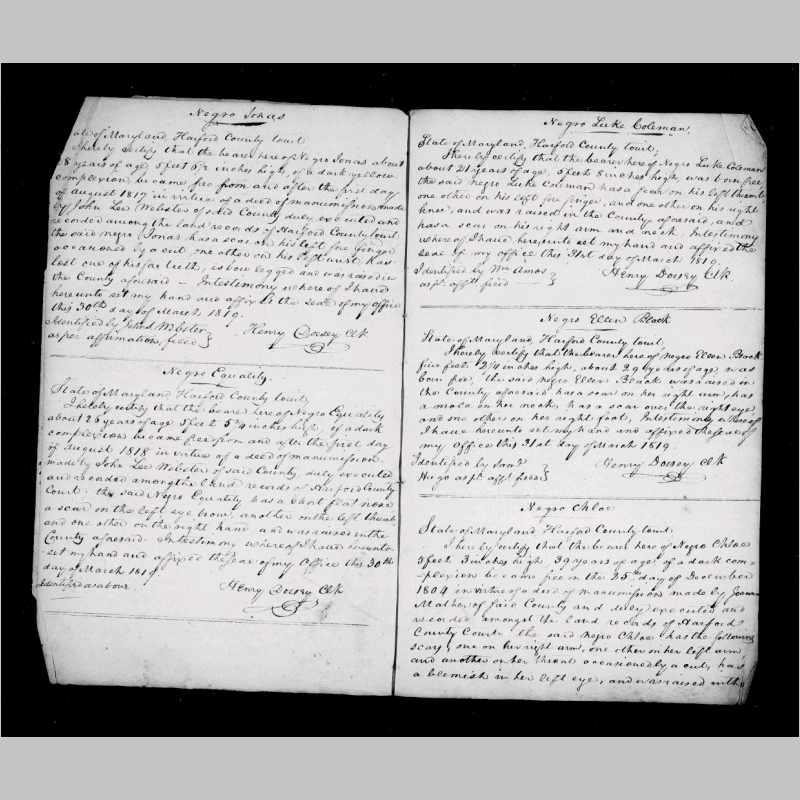 Negro Jonas
State of Maryland, Harford County Court
I hereby certify that the bearer hereof Negro Jonas about
28 years of age 5 feet 5½ inches high, of a dark yellow
complexion became free from and after the first day
of August 1817 in virtue of a deed of manumission made
by John Lee Webster of said County duly executed and
recorded among the land records of Harford County Court
the said Negro Jonas has a scar on his left fore finger
occasioned by a cut, one other on his left wrist has
lost one of his fore teeth, is bow legged and was raised in
the County aforesaid — In testimony whereof I have
hereunto set my hand and affix'd the seal of my office
this 30th day of March 1819.
Identified by Webster
as per affirmation filed } Henry Dorsey Clk
Negro Equality.
State of Maryland Harford County Court,
I hereby certify that the bearer hereof Negro Equality
about 28 years of age 5 feet 5¾ inches high, of a dark
complexion became free from and after the first day
of August 1818 in virtue of a deed of manumission
made by John Lee Webster of said County duly executed
and recorded among the land records of Harford County
Court. the said Negro Equality has a short flat nose
a scar on the left eye brow, another on the left thumb
and one other on the right hand and was raised in the
County aforesaid. In testimony whereof I have hereunto
set my hand and affixed the seal of my Office this 30th
day of March 1819
Identified as above Henry Dorsey Clk
Negro Luke Coleman,
State of Maryland, Harford County Court,
I hereby certify that the bearer hereof Negro Luke Coleman
about 21 years of age, 5 feet 8 inches high, was born free
the said Negro Luke Coleman has a scar on his left thumb
one other on his left fore finger, and one other on his right
knee, and was raised in the County aforesaid, and
has a scar on his right arm and neck In testimony
whereof I have hereunto set my hand and affixed the
seal of my office this 31st day of March 1819.
Identified by Wm Amos }
as pr. afft. filed Henry Dorsey Clk.
Negro Ellen Black
State of Maryland, Harford County Court,
I hereby certify that the bearer hereof Negro Ellen Black
five feet 2¼ inches high, about 29 years of age, was
born free, the said Negro Ellen Black was raised in
the County aforesaid has a scar on her right arm, has
a mold on her neck, has a scar over the right eye,
and one other on her right foot, In testimony whereof
I have hereunto set my hand and affixed the seal of
my Office this 31st day of March 1819.
Identified by Saml.
Hugo as pr. afft. filed } Henry Dorsey Clk
Negro Chloe
State of Maryland Harford County Court,
I hereby certify that the bearer hereof Negro Chloe
5 feet 3 inches high 39 years of age of a dark com-
-plexion became free on the 25th day of December
1804 in virtue of a deed of manumission made by
Mather of said County and duly executed and
recorded amongst the land records of Harford
County Court the said Negro Chloe has the following
scars, one on her right arm, one other on her left arm
and another on her throat occasioned by a cut, has
a blemish in her left eye, and was raised in the